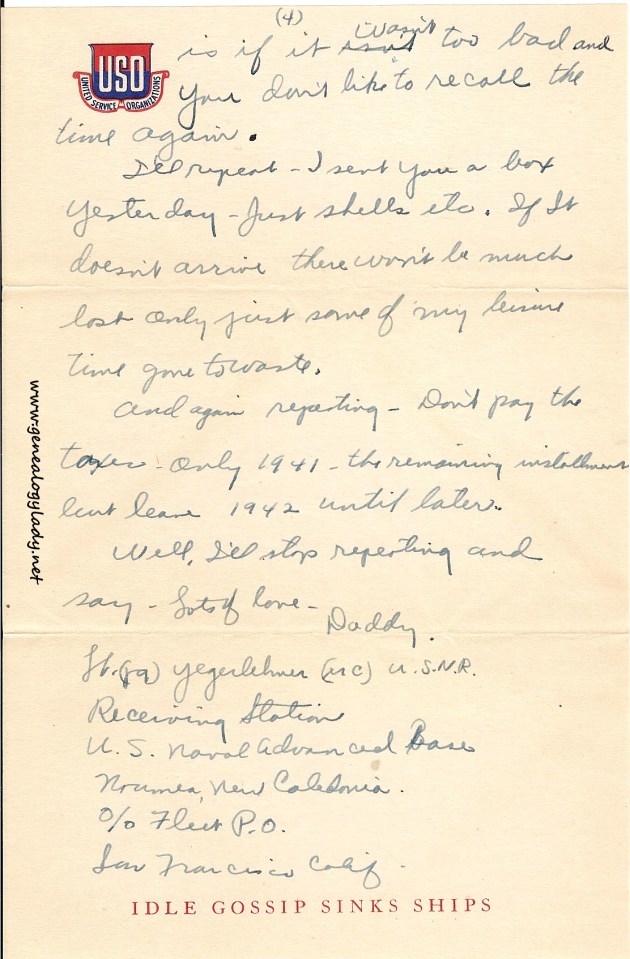 (4)
is if it wasn't too bad and
USO
UNITED SERVICE ORGANIZATIONS
you don't like to recall the
time again.
I'll repeat - I sent you a box
yesterday - Just shells etc. If It
doesn't arrive there won't be much
lost only just some of my leisure
time gone to waste.
And again repeating - Don't pay the
taxes - only 1941 - the remaining installment
but leave 1942 until later.
Well, I'll stop repeating and
say - Lots of love -
Daddy.
Lt.(jg) Yegerlehner (MC) U.S.N.R.
Receiving Station
U. S. Naval Advanced Base
Noumea, New Caledonia.
c/o Fleet P.O.
San Francisco Calif.
IDLE GOSSIP SINKS SHIPS
www.genealogylady.net